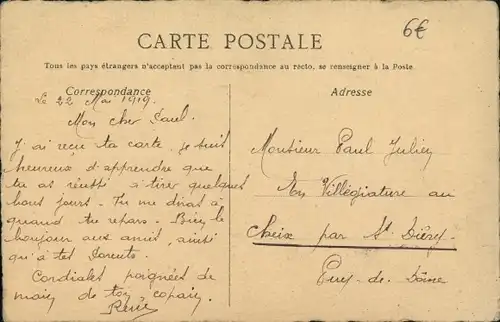 6€
CARTE POSTALE
Tous les pays étrangers n'acceptent pas la correspondance au recto, se renseigner à la Poste
Correspondance
Adresse
Le 22 Mai 1919.
Mon cher Paul.
J'ai reçu ta carte. je suis
heureux d'apprendre que
tu as réussi à tirer quelques
bons jours. Tu me diras
quand tu repars. Bien le
bonjour aux amis, ainsi
qu'à tes parents.
Cordiales poignées de
main de ton copain,
René
Monsieur Paul Julien
En Villégiature au
Cheix par St Diéry.
Puy-de-Dôme